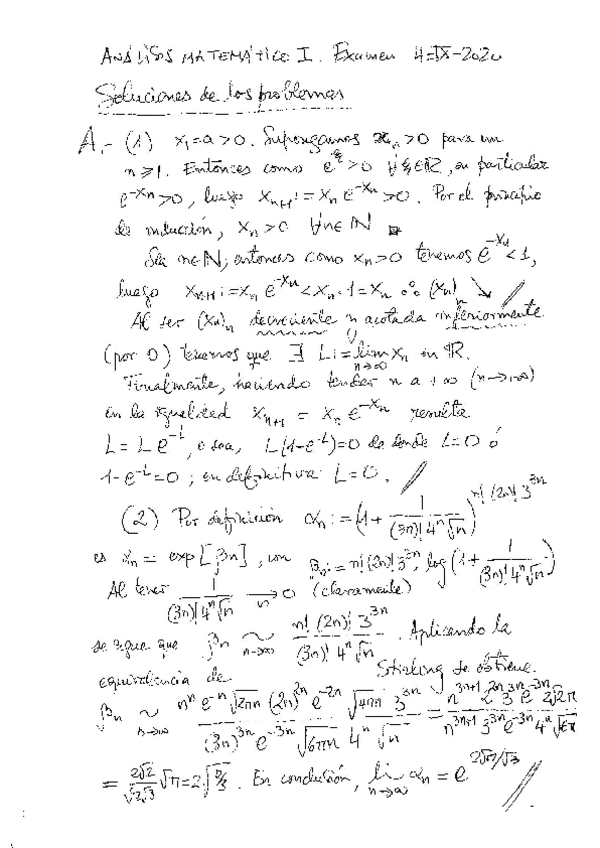 ANÁLISIS MATEMÁTICO I. Examen 4-IX-2020
Soluciones de los problemas
A.- (1) x₁=a>0. Supongamos xₙ>0 para un
n⩾1. Entonces como e^ξ>0 ∀ξ∈ℝ, en particular
e^{-xₙ}>0, luego xₙ₊₁:=xₙ e^{-xₙ}>0. Por el principio
de inducción, xₙ>0 ∀n∈ℕ
Sea n∈ℕ; entonces como xₙ>0 tenemos e^{-xₙ}<1,
luego xₙ₊₁:=xₙ e^{-xₙ}<xₙ·1=xₙ ∴ (xₙ)ₙ ↘ //
Al ser (xₙ)ₙ decreciente y acotada inferiormente
(por 0) tenemos que ∃ L:=lim_{n→∞} xₙ in ℝ.
Finalmente, haciendo tender n a +∞ (n→+∞)
en la igualdad xₙ₊₁ = xₙ e^{-xₙ} resulta
L = L e^{-L}, o sea, L(1-e^{-L})=0 de donde L=0 ó
1-e^{-L}=0; en definitiva L=0. //
(2) Por definición αₙ:=(1+ 1/((3n)! 4ⁿ√n))^{n!(2n)! 3^{3n}}
es αₙ = exp[βₙ], con βₙ:=n!(2n)! 3^{3n} log(1+ 1/((3n)! 4ⁿ√n))
Al tener 1/((3n)! 4ⁿ√n) →ₙ 0 (claramente)
se sigue que βₙ ~_{n→∞} n!(2n)! 3^{3n}/((3n)! 4ⁿ√n). Aplicando la
equivalencia de Stirling se obtiene
βₙ ~_{n→∞} nⁿ e^{-n}√(2πn) (2n)^{2n} e^{-2n} √(4πn) 3^{3n} / ((3n)^{3n} e^{-3n} √(6πn) 4ⁿ √n) = n^{3n+1} 2^{2n} 3^{3n} e^{-3n} 2√2π / (n^{3n+1} 3^{3n} e^{-3n} 4ⁿ √6π)
= 2√2/(√2√3) √π = 2√(π/3). En conclusión, lim_{n→∞} αₙ = e^{2√π/√3} //